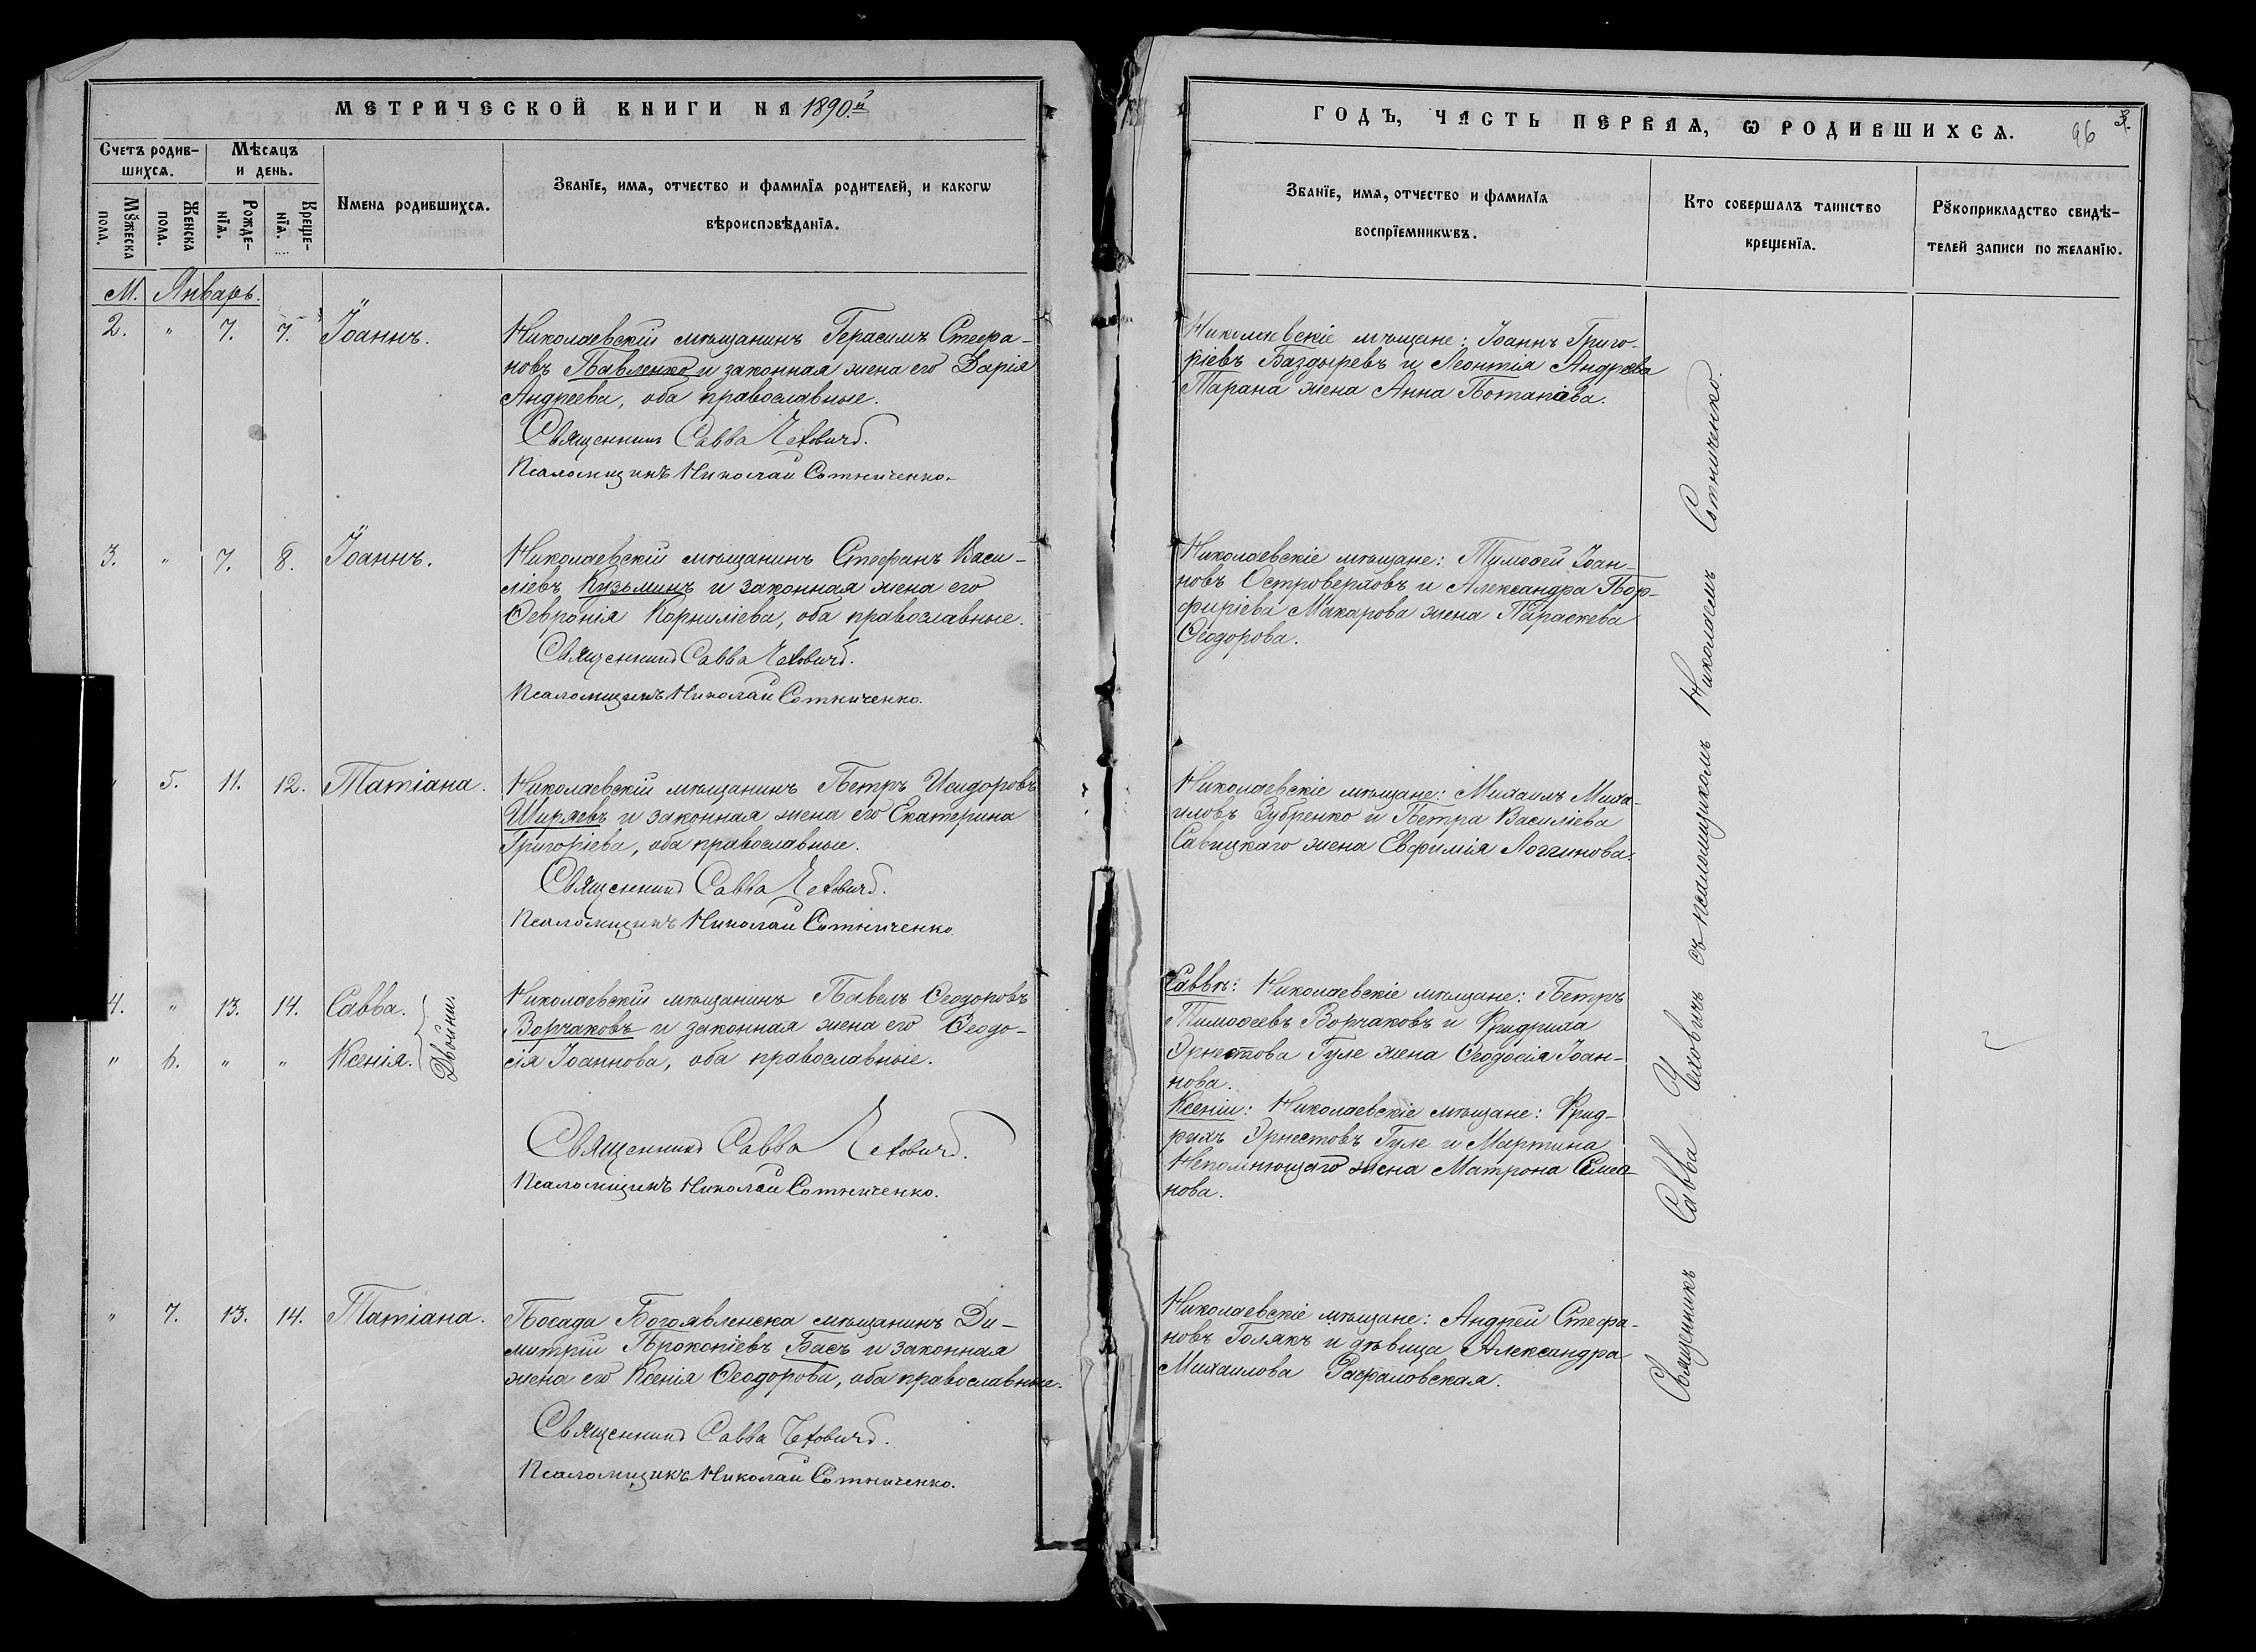 МЕТРИЧЕСКОЙ КНИГИ НА 1890.й
Счетъ родив-
шихсѧ.
Мѣсѧцъ
и день.
Мꙋжеска
пола.
Женска
пола.
Рожде-
нїѧ.
Креще-
нїѧ.
Имена родившихсѧ.
Званїе, имѧ, отчество и фамилїѧ родителей, и какогѡ
вѣроисповѣданїѧ.
М. Январь.
2. " 7. 7. Іоаннъ.
Николаевскій мѣщанинъ Герасимъ Стефа-
новъ Павленко и законная жена его Дарія
Андреева, оба православные.
Священникъ Савва Чеховичъ.
Псаломщикъ Николай Сотниченко.
3. " 7. 8. Іоаннъ.
Николаевскій мѣщанинъ Стефанъ Васи-
ліевъ Кузьминъ и законная жена его
Ѳевронія Корниліева, оба православные.
Священникъ Савва Чеховичъ.
Псаломщикъ Николай Сотниченко.
" 5. 11. 12. Татіана.
Николаевскій мѣщанинъ Петръ Исидоровъ
Ширяевъ и законная жена его Екатерина
Григоріева, оба православные.
Священникъ Савва Чеховичъ.
Псаломщикъ Николай Сотниченко.
4. " 13. 14. Савва.
" 6. " " Ксенія.
Двойни.
Николаевскій мѣщанинъ Павелъ Ѳеодоровъ
Ворчаковъ и законная жена его Ѳеодо-
сія Іоаннова, оба православные.
Священникъ Савва Чеховичъ.
Псаломщикъ Николай Сотниченко.
" 7. 13. 14. Татіана.
Посада Богоявленска мѣщанинъ Ди-
митрій Прокопіевъ Басъ и законная
жена его Ксенія Ѳеодорова, оба православные.
Священникъ Савва Чеховичъ.
Псаломщикъ Николай Сотниченко.
ГОДЪ, ЧАСТЬ ПЕРВАѦ, Ѡ РОДИВШИХСѦ.
96
Званїе, имѧ, отчество и фамилїѧ
воспрїемникѡвъ.
Кто совершалъ таинство
крещенїѧ.
Рꙋкоприкладство свидѣ-
телей записи по желанїю.
Николаевскіе мѣщане: Іоаннъ Григо-
ріевъ Баздыревъ и Леонтія Андреева
Тарана жена Анна Потапіева.
Николаевскіе мѣщане: Тимоѳей Іоан-
новъ Островерховъ и Александра Пор-
фиріева Макарова жена Параскева
Ѳеодорова.
Николаевскіе мѣщане: Михаилъ Миха-
иловъ Зубренко и Петра Василіева
Савицкаго жена Евфимія Логгинова.
Саввы: Николаевскіе мѣщане: Петръ
Тимоѳеевъ Ворчаковъ и Фридриха
Эрнестова Гуле жена Ѳеодосія Іоан-
нова.
Ксеніи: Николаевскіе мѣщане: Фрид-
рихъ Эрнестовъ Гуле и Мартина
Непомнющаго жена Матрона Симо-
нова.
Николаевскіе мѣщане: Андрей Стефа-
новъ Голякъ и дѣвица Александра
Михаилова Рафаловская.
Священникъ Савва Чеховичъ съ псаломщикомъ Николаемъ Сотниченко.